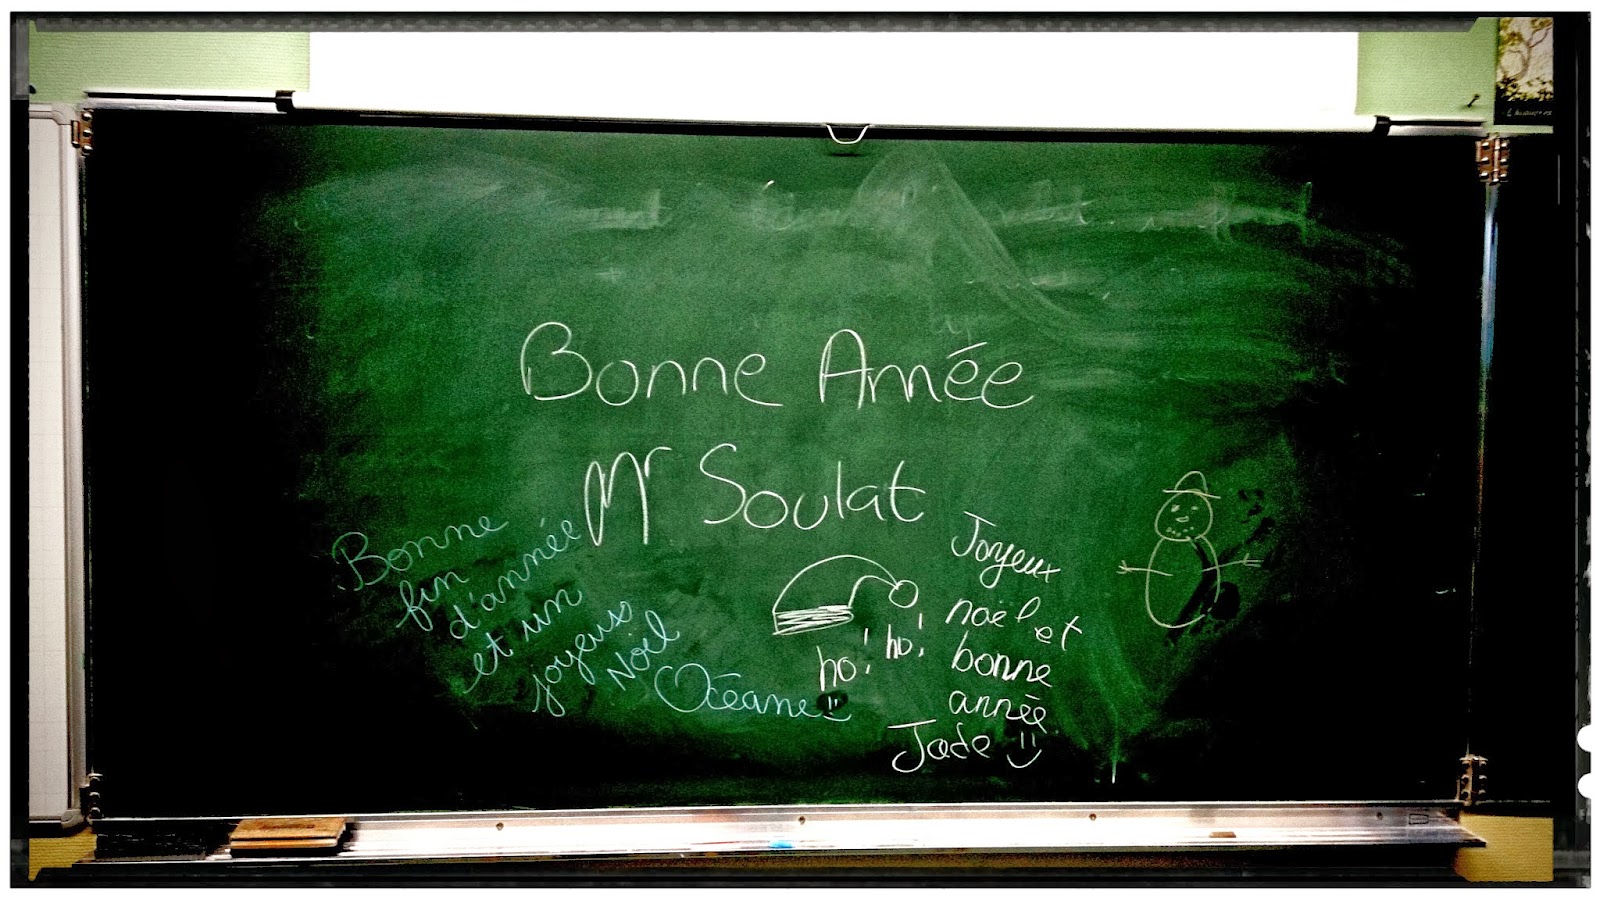 Bonne Année
Mr Soulat
Bonne
fin
d'année
et un
joyeux
Noël
Océane
ho! ho!
Joyeux
noël et
bonne
année
Jade